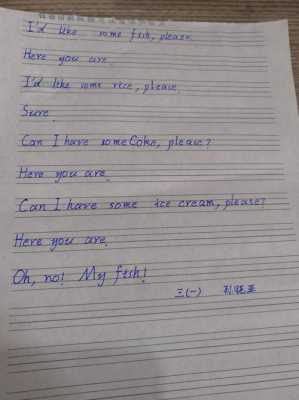 I'd like some fish, please.
Here you are.
I'd like some rice, please.
Sure.
Can I have some Coke, please?
Here you are.
Can I have some ice cream, please?
Here you are.
Oh, no! My fish!
三(一)